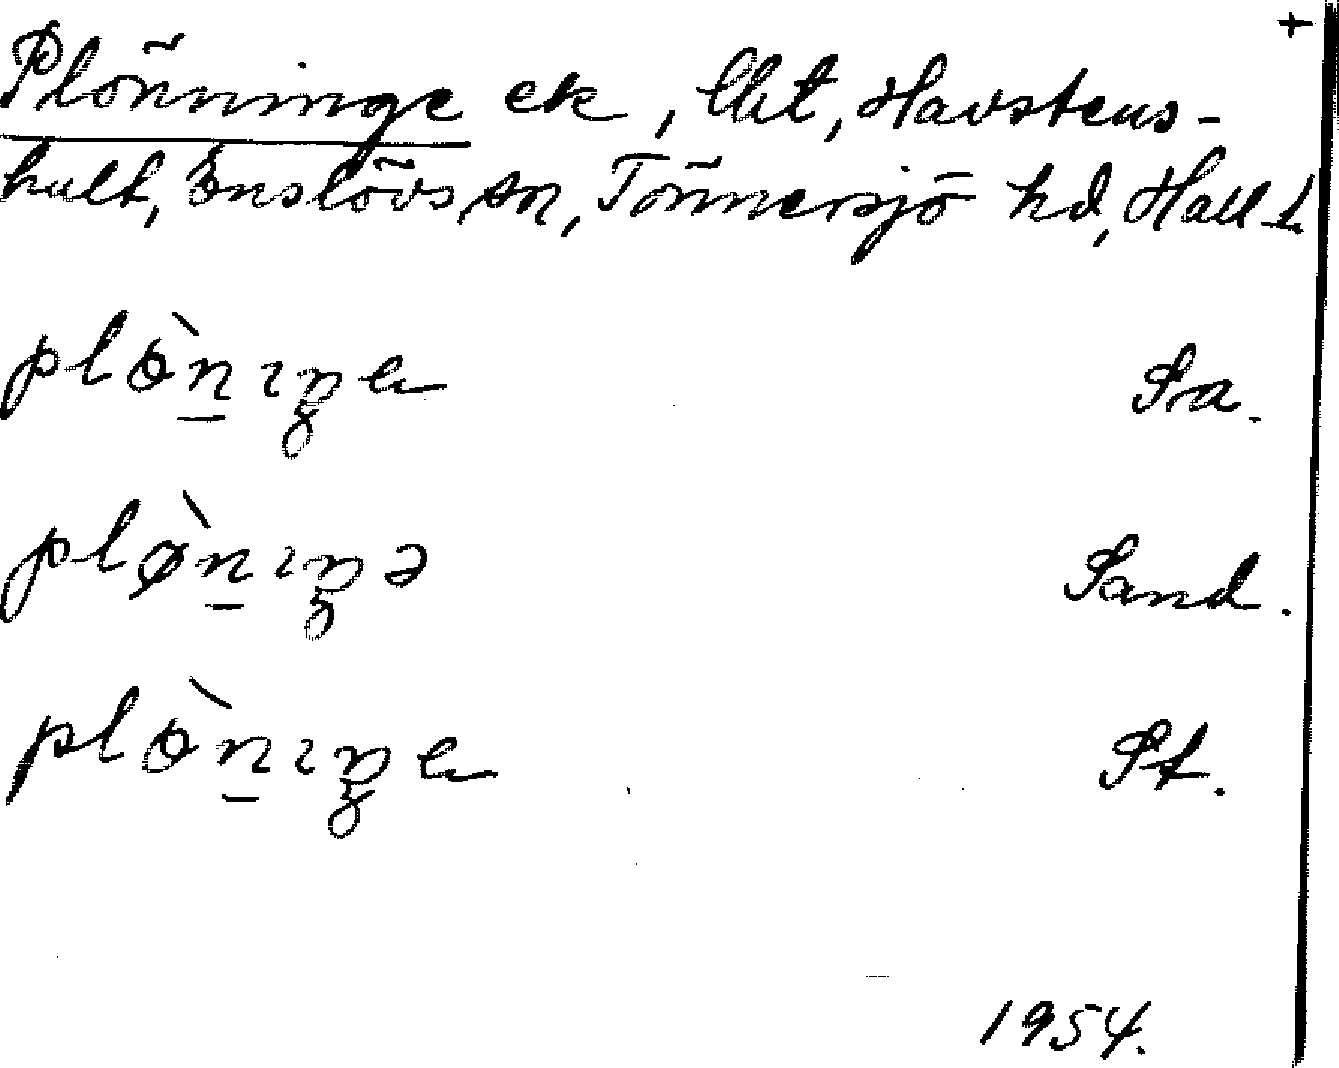 +
Plönninge ek, lht, Havstens-
hult, Enslövs sn, Tönnersjö hd, Hall. l.
plòṉıŋe Sa.
plø̀ṉıŋə Sand.
plòṉıŋe St.
1954.